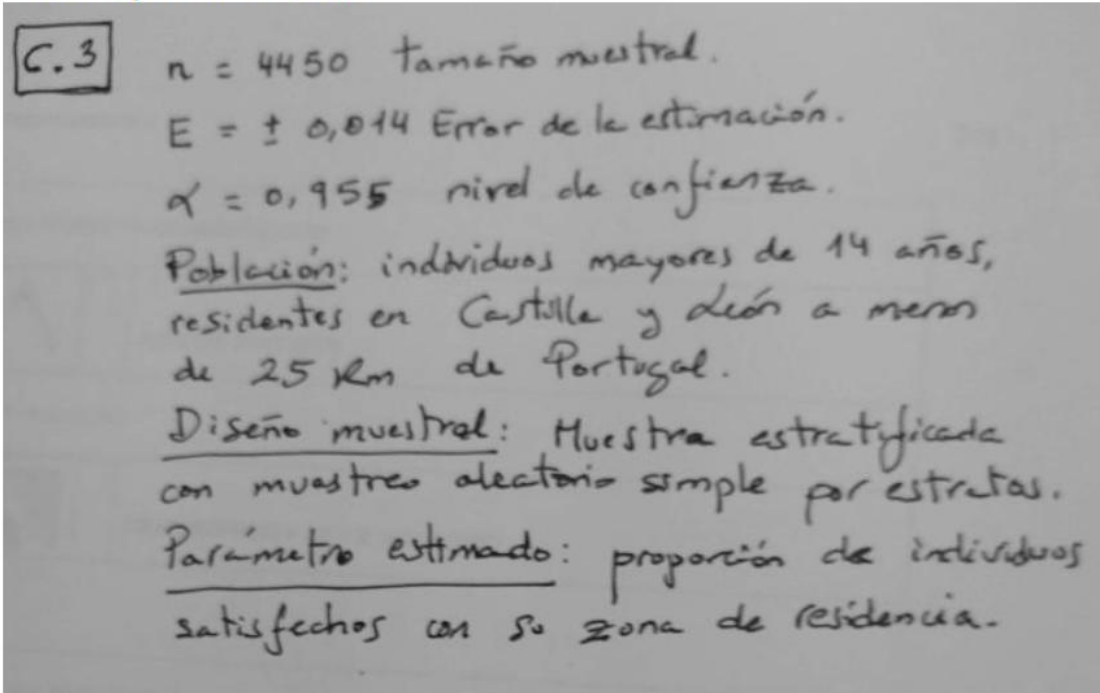 C.3
n = 4450 tamaño muestral.
E = ± 0,014 Error de la estimación.
α = 0,955 nivel de confianza.
Población: individuos mayores de 14 años,
residentes en Castilla y León a menos
de 25 Km de Portugal.
Diseño muestral: Muestra estratificada
con muestreo aleatorio simple por estratos.
Parámetro estimado: proporción de individuos
satisfechos con su zona de residencia.